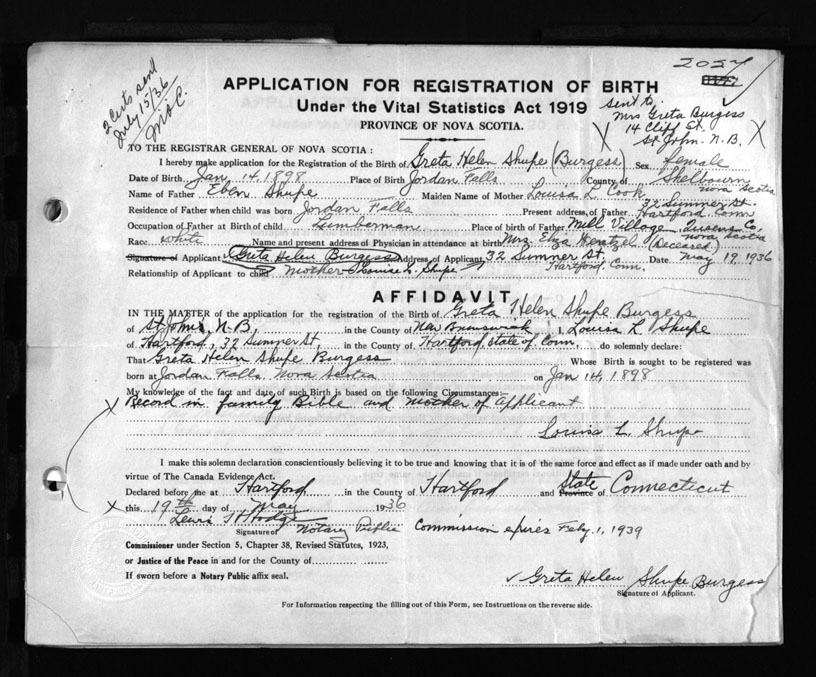 2027
2 Certs send
July 15/36
APPLICATION FOR REGISTRATION OF BIRTH
Under the Vital Statistics Act 1919
PROVINCE OF NOVA SCOTIA.
sent to
Mrs Greta Burgess
14 Cliff St.
St John. N.B.
X X
TO THE REGISTRAR GENERAL OF NOVA SCOTIA :
I hereby make application for the Registration of the Birth of Greta Helen Shupe (Burgess) Sex female
Date of Birth Jan 14, 1898 Place of Birth Jordan Falls County of Shelbourn Nova Scotia
Name of Father Eben Shupe Maiden Name of Mother Louisa L Cook
Residence of Father when child was born Jordan Falls Present address of Father 32 Summer St. Hartford Conn
Occupation of Father at Birth of child Lumberman Place of birth of Father Mill Village, Queens Co, Nova Scotia
Race white Name and present address of Physician in attendance at birth Mrs. Eliza (Deceased)
Signature of Applicant Greta Helen Burgess Address of Applicant 32 Summer St, Hartford, Conn. Date May 19, 1936
Relationship of Applicant to child Mother Louise L. Shupe
AFFIDAVIT
IN THE MATTER of the application for the registration of the Birth of Greta Helen Shupe Burgess
of St John, N.B, in the County of New Brunswick I, Louisa L Shupe
of Hartford, 32 Summer St, in the County of Hartford, state of Conn, do solemnly declare:
That Greta Helen Shupe Burgess Whose Birth is sought to be registered was
born at Jordan Falls Nova Scotia on Jan 14, 1898
My knowledge of the fact and date of such Birth is based on the following Circumstances:—
X Record in family Bible and mother of applicant
Louisa L Shupe
I make this solemn declaration conscientiously believing it to be true and knowing that it is of the same force and effect as if made under oath and by
virtue of The Canada Evidence Act.
Declared before me at Hartford in the County of Hartford and Province State of Connecticut
X this 19th day of May 1936
Lewis H Hodge
Signature of Notary Public Commission expires Feby. 1, 1939
Commissioner under Section 5, Chapter 38, Revised Statutes, 1923,
or Justice of the Peace in and for the County of
If sworn before a Notary Public affix seal.
✓ Greta Helen Shupe Burgess
Signature of Applicant.
For Information respecting the filling out of this Form, see Instructions on the reverse side.